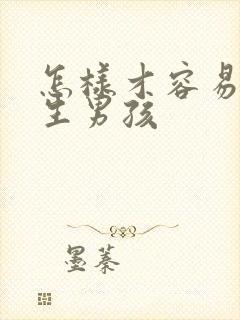 怎樣才容易
生男孩
墨蓁